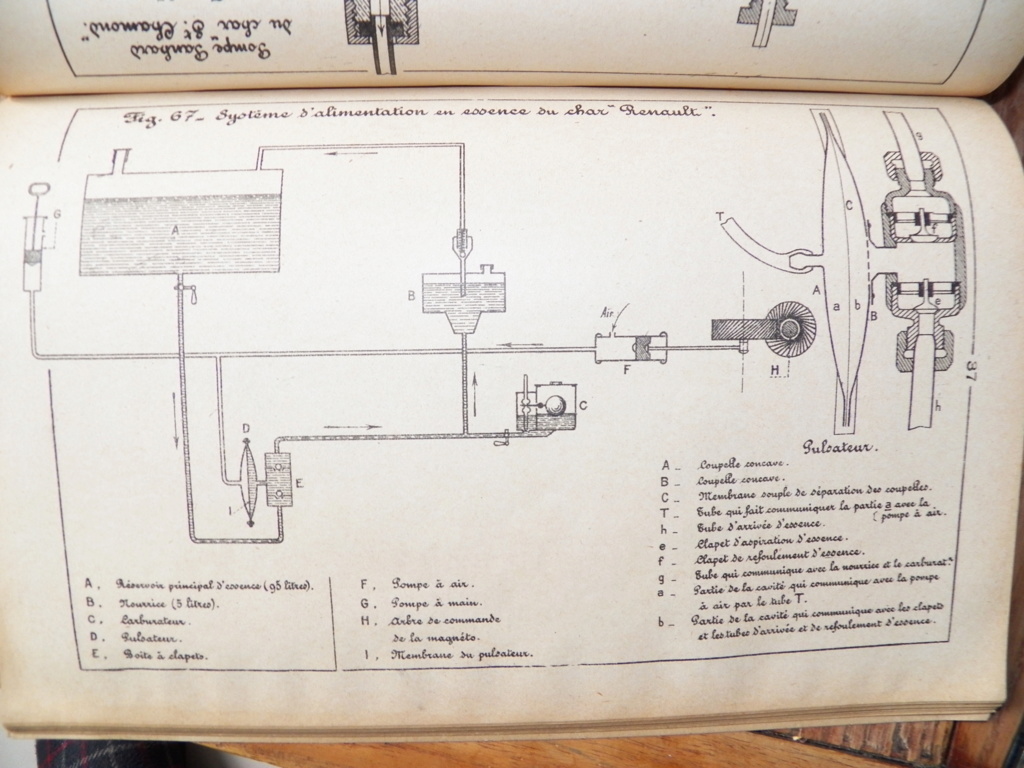 Pompe "Panhard
du char "St. Chamond"
Fig. 67_ Système d'alimentation en essence du char "Renault".
A
G
B
Air
F
D
I
E
C
H
T
A
C
a
b
B
g
f
e
h
37
Pulsateur.
A_ Coupelle concave.
B_ Coupelle concave.
C_ Membrane souple de séparation des coupelles.
T_ Tube qui fait communiquer la partie a avec la
(pompe à air.
h_ Tube d'arrivée d'essence.
e_ Clapet d'aspiration d'essence.
f_ Clapet de refoulement d'essence.
g_ Tube qui communique avec la nourrice et le carburatr.
a_ Partie de la cavité qui communique avec la pompe
à air par le tube T.
b_ Partie de la cavité qui communique avec les clapets
et les tubes d'arrivée et de refoulement d'essence.
A, Réservoir principal d'essence (95 litres).
B, Nourrice (5 litres).
C, Carburateur.
D, Pulsateur.
E, Boite à clapets.
F, Pompe à air.
G, Pompe à main.
H, Arbre de commande
de la magnéto.
I, Membrane du pulsateur.